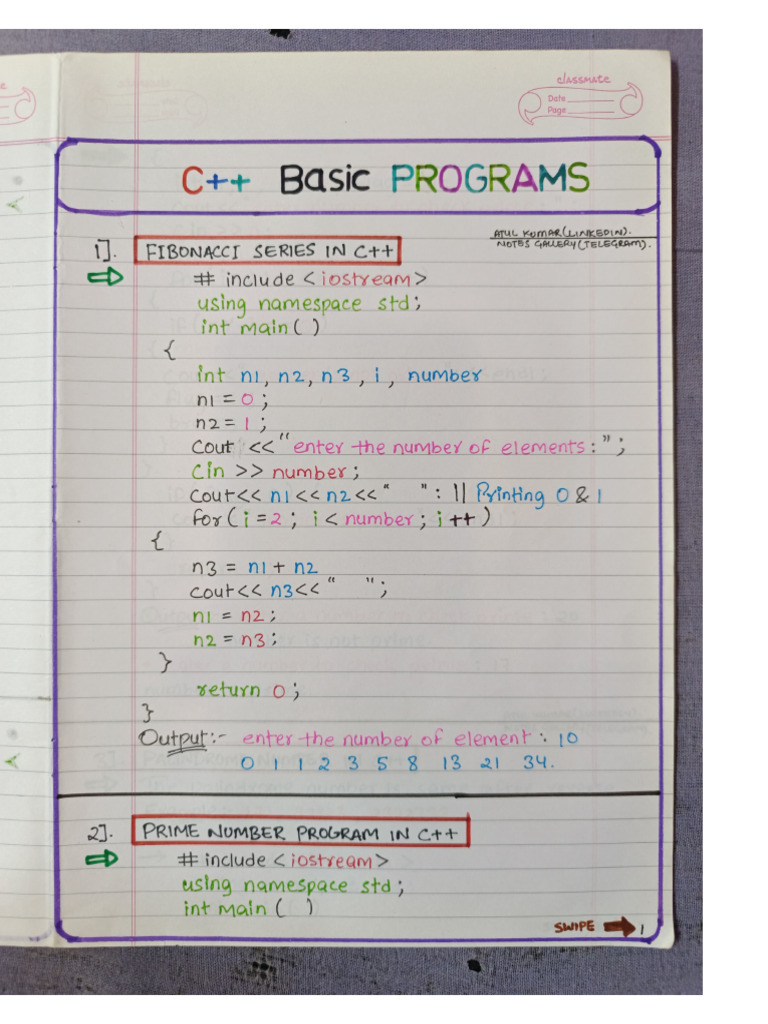 classmate
Date
Page
C++ Basic PROGRAMS
ATUL KUMAR (LINKEDIN).
NOTES GALLERY (TELEGRAM).
1]. FIBONACCI SERIES IN C++
# include <iostream>
using namespace std;
int main( )
{
int n1, n2, n3, i, number
n1 = 0;
n2 = 1;
Cout <<"enter the number of elements:";
Cin >> number;
Cout<< n1<< n2<<" ": || Printing 0 & 1
for( i = 2; i < number; i ++ )
{
n3 = n1 + n2
cout<< n3<<" ";
n1 = n2;
n2 = n3;
}
return 0;
}
Output:- enter the number of element : 10
0 1 1 2 3 5 8 13 21 34.
2]. PRIME NUMBER PROGRAM IN C++
# include <iostream>
using namespace std;
int main ( )
SWIPE 1